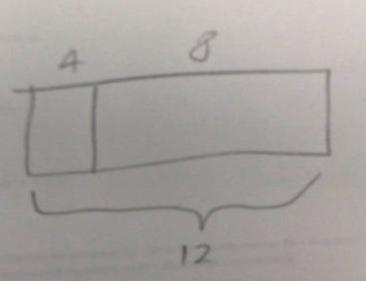 4 8
12